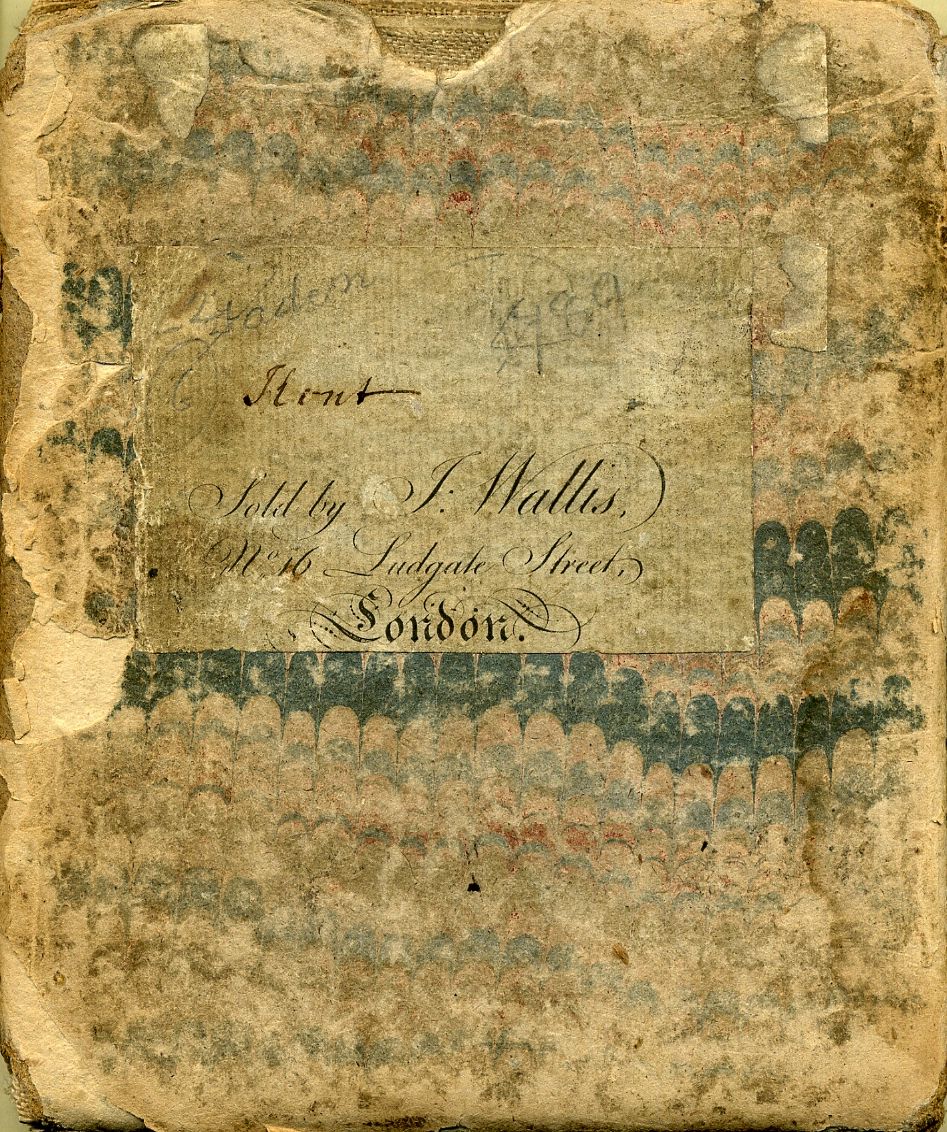 Kent
Sold by J. Wallis,
No. 16 Ludgate Street,
London.